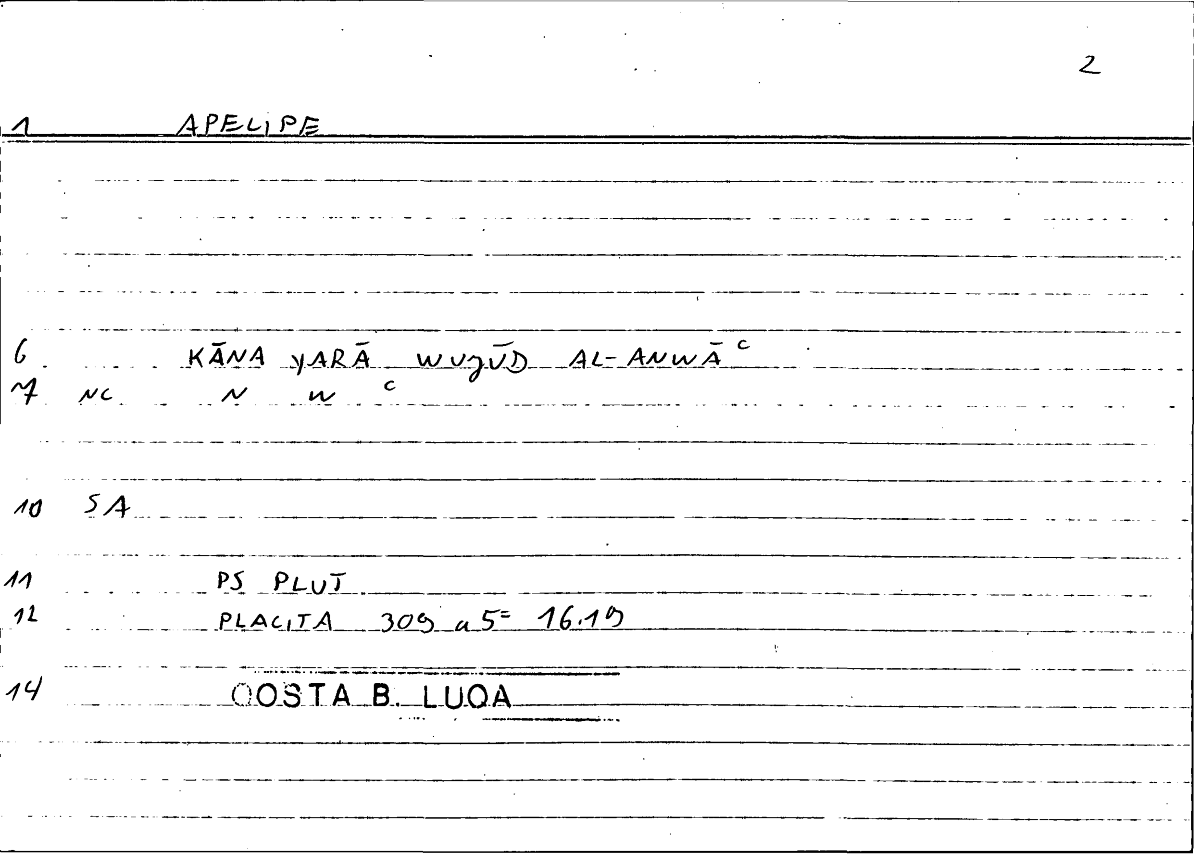 2
1 APELIPE
6 KĀNA YARĀ WUJŪD AL-ANWĀ ͨ
7 NC N W ͨ
10 SA
11 PS PLUT
12 PLACITA 309 a 5= 16.19
14 QOSTA B. LUQA